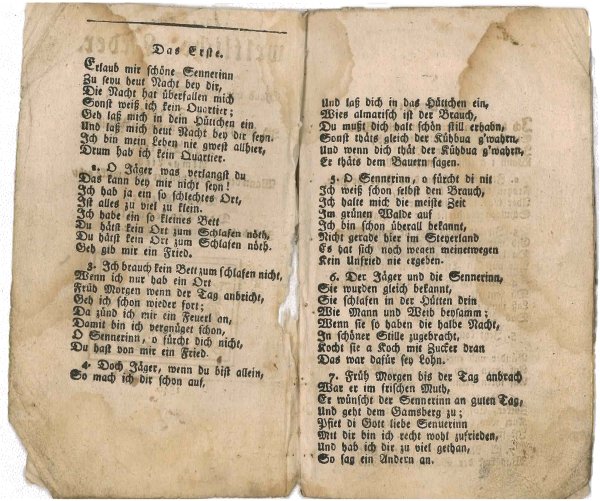 Das Erste.
Erlaub mir schöne Sennerinn
Zu seyn heut Nacht bey dir,
Die Nacht hat überfallen mich
Sonst weiß ich kein Quartier;
Geh laß mich in dein Hüttchen ein
Und laß mich heut Nacht bey dir seyn.
Ich bin mein Leben nie gwest allhier,
Drum hab ich kein Quartier.
2. O Jäger was verlangst du
Das kann bey mir nicht seyn!
Ich hab ja ein so schlechtes Ort,
Ist alles zu viel zu klein.
Ich habe ein so kleines Bett
Du hätst kein Ort zum Schlafen nöth,
Du hätst kein Ort zum Schlafen nöth.
Geh gib mir ein Fried.
3. Ich brauch kein Bett zum schlafen nicht,
Wenn ich nur hab ein Ort
Früh Morgen wenn der Tag anbricht,
Geh ich schon wieder fort;
Da zünd ich mir ein Feuerl an,
Damit bin ich vergnüget schon,
O Sennerinn, o fürcht dich nicht,
Du hast von mir ein Fried.
4. Doch Jäger, wenn du bist allein,
So mach ich dir schon auf,
Und laß dich in das Hüttchen ein,
Wies almarisch ist der Brauch,
Du mußt dich halt schön still erhabn,
Sonst thäts gleich der Kühbua g'wahrn,
Und wenn dich thät der Kühbua g'wahrn,
Er thäts dem Bauern sagen.
5. O Sennerinn, o fürcht di nit
Ich weiß schon selbst den Brauch,
Ich halte mich die meiste Zeit
Im grünen Walde auf
Ich bin schon überall bekannt,
Nicht gerade hier im Steyerland
Es hat sich noch wegen meinetwegen
Kein Unfried nie ergeben.
6. Der Jäger und die Sennerinn,
Sie wurden gleich bekannt,
Sie schlafen in der Hütten drin
Wie Mann und Weib beysamm;
Wenn sie so haben die halbe Nacht,
In schöner Stille zugebracht,
Kocht sie a Koch mit Zucker dran
Das war dafür sey Lohn.
7. Früh Morgen bis der Tag anbrach
War er im frischen Muth,
Er wünscht der Sennerinn an guten Tag,
Und geht dem Gamsberg zu;
Pfiet di Gott liebe Senuerinn
Mit dir bin ich recht wohl zufrieden,
Und hab ich dir zu viel gethan,
So sag ein Andern an.